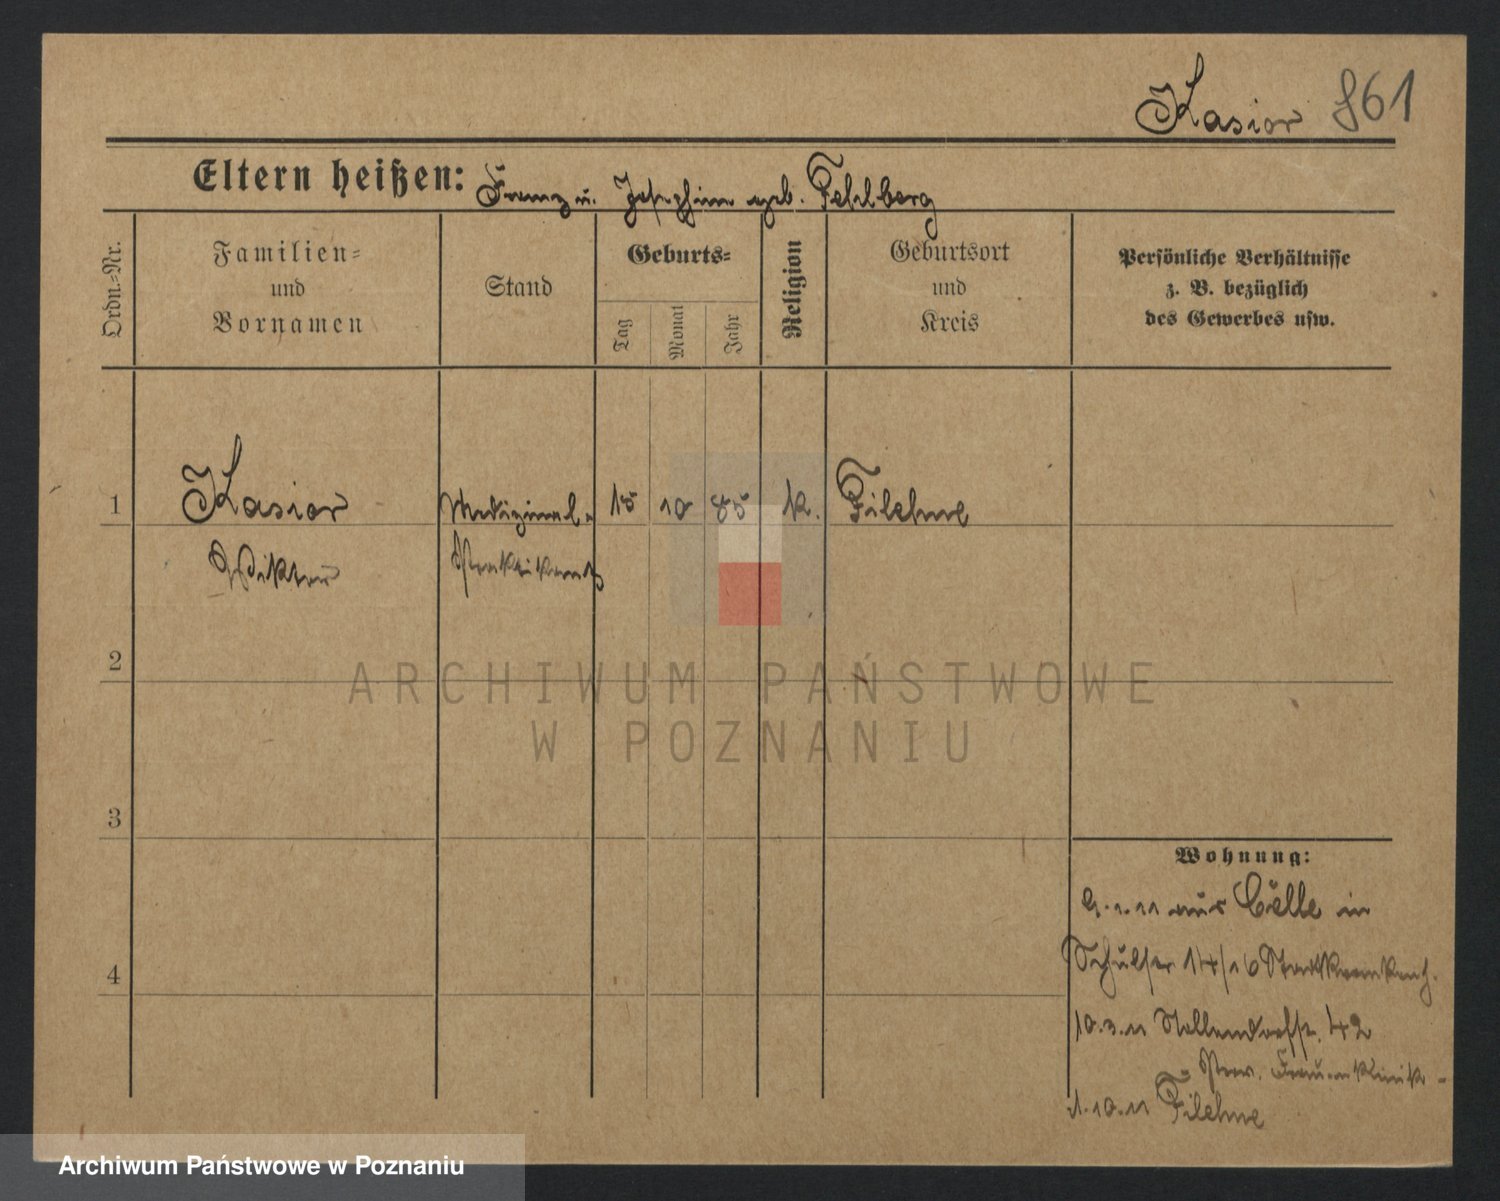 Kasior 861
Eltern heißen: Franz u. Josephine geb. Fehlberg
Ordn.-Nr.
Familien-
und
Vornamen
Stand
Geburts-
Tag
Monat
Jahr
Religion
Geburtsort
und
Kreis
Persönliche Verhältnisse
z. B. bezüglich
des Gewerbes usw.
1 Kasior Medizinal- 15 10 85 k. Filehne
Wiktor Praktikant
2
3
4
Wohnung:
9.1.11 aus Cölle in
Schulstr 14/16 Stadtkrankenh.
10.3.11 Nollendorfstr. 42
Prov. Frauenklinik -
1.10.11 Filehne
ARCHIWUM PAŃSTWOWE
W POZNANIU
Archiwum Państwowe w Poznaniu